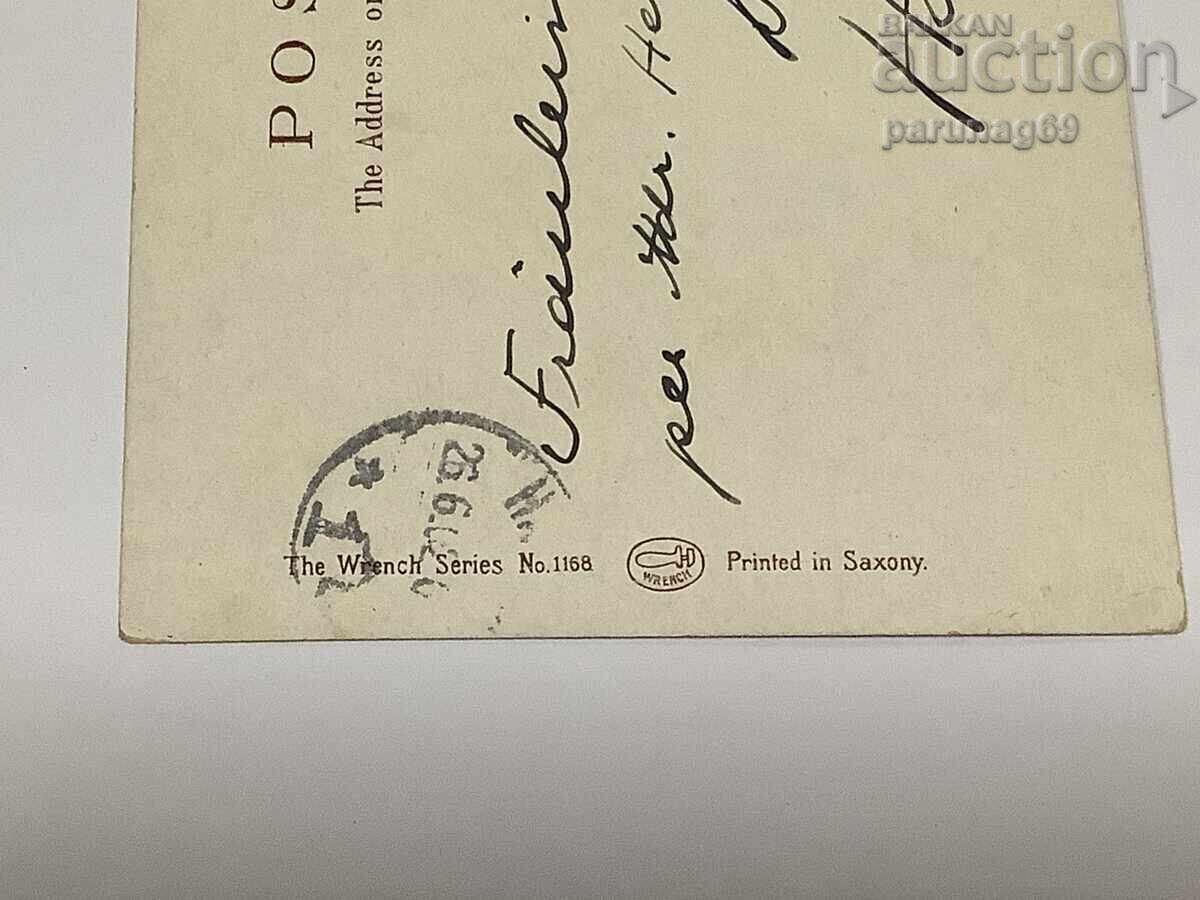 POS
The Address on
Fräulein
per Adr. He
The Wrench Series No. 1168
WRENCH
Printed in Saxony.
26 6
I
BALKAN
auction
parumag69